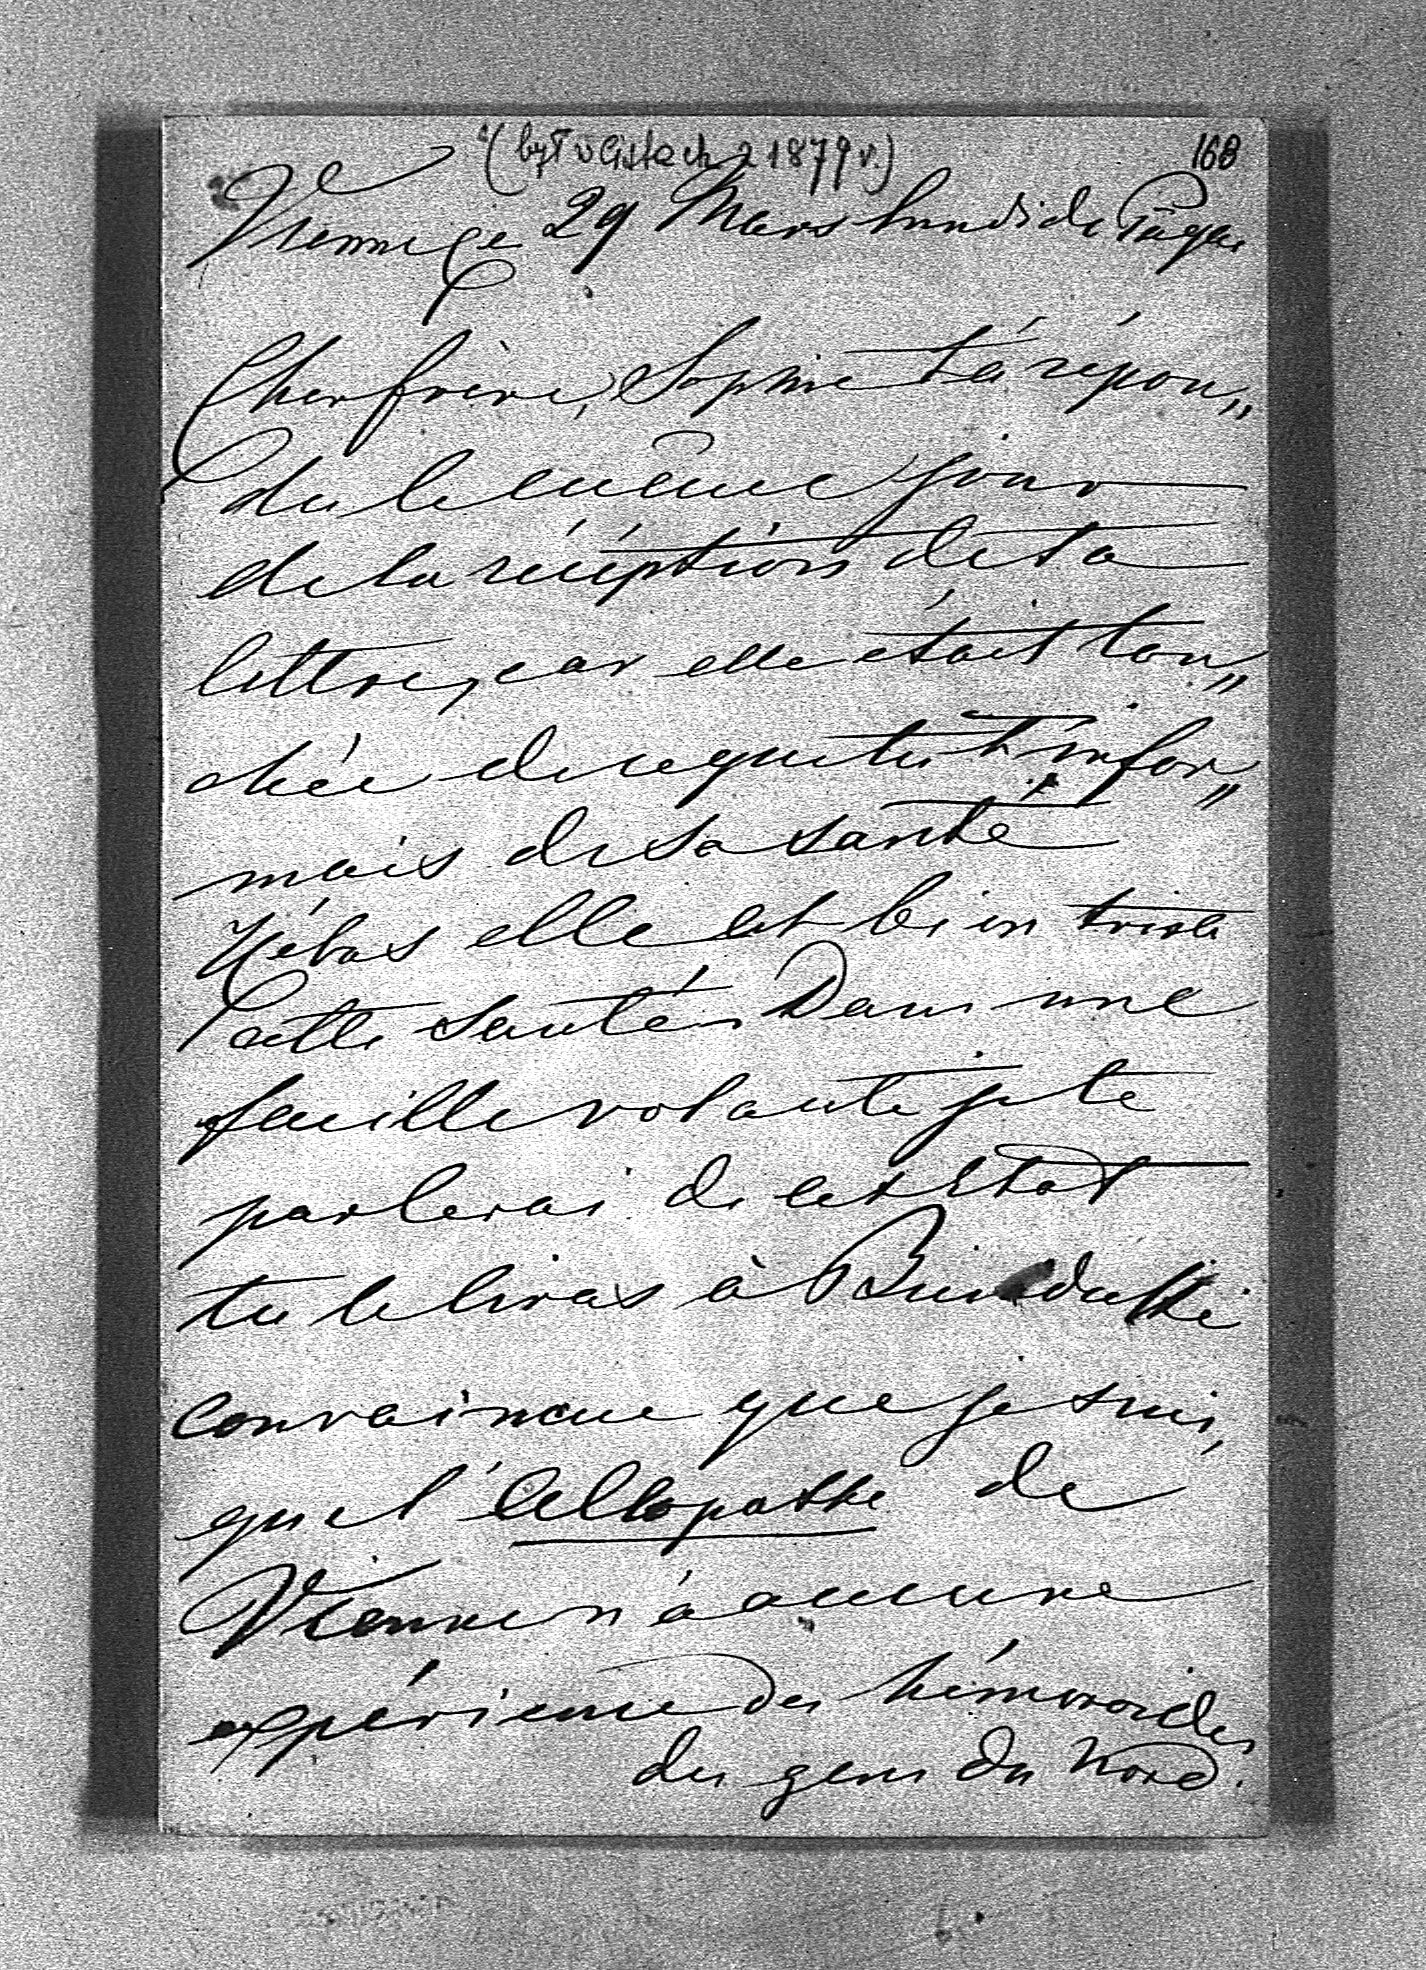 (był w listach z 1879 r.) 168
Vienne ce 29 Mars lundi de Pâques
Cher frère, Sophie t'á répon„
du le même jour
de la réception de ta
lettre, car elle était tou„
chée de ce que tu t'infor„
mais de sa santé
Hélas elle est bien triste
cette santé, Dans une
feuille volante je te
parlerai de cet état
tu le liras à
convaincue que je suis,
que l'allopathe de
Vienne n'á aucune
expérience des hémoroides
des gens du Nord.